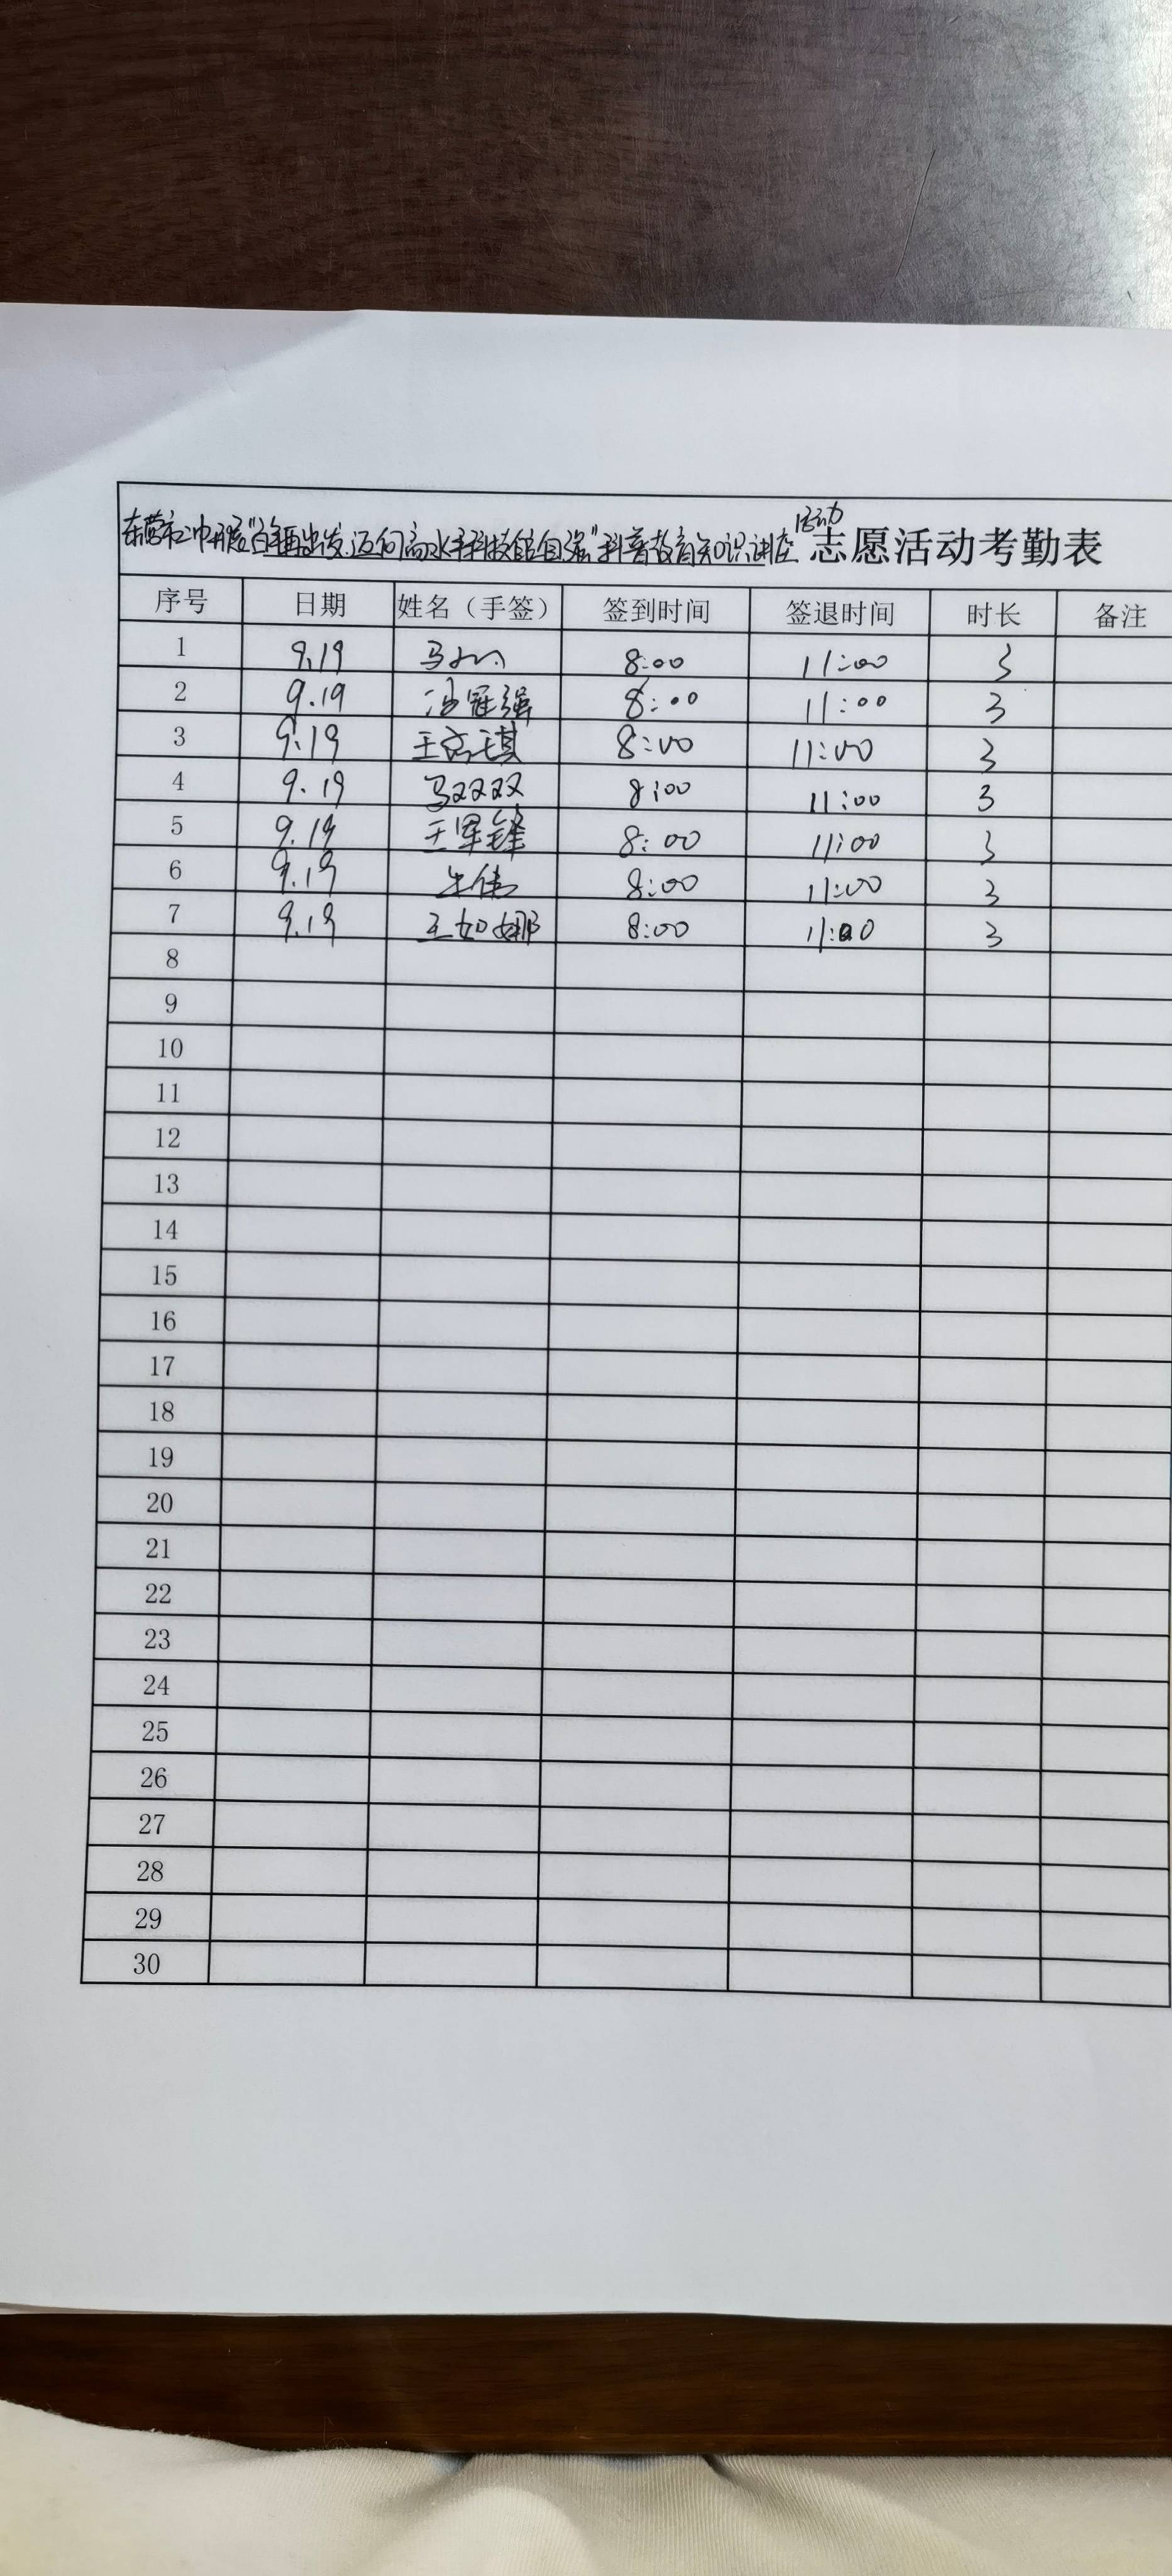 东营市二中开展"百年再出发,迈向高水平科技自立自强"科普教育知识讲座 活动 志愿活动考勤表
序号 日期 姓名（手签） 签到时间 签退时间 时长 备注
1 9.19 8:00 11:00 3
2 9.19 冯冠强 8:00 11:00 3
3 9.19 8:00 11:00 3
4 9.19 马双双 8:00 11:00 3
5 9.19 王军锋 8:00 11:00 3
6 9.19 8:00 11:00 3
7 9.19 王如娜 8:00 11:00 3
8
9
10
11
12
13
14
15
16
17
18
19
20
21
22
23
24
25
26
27
28
29
30